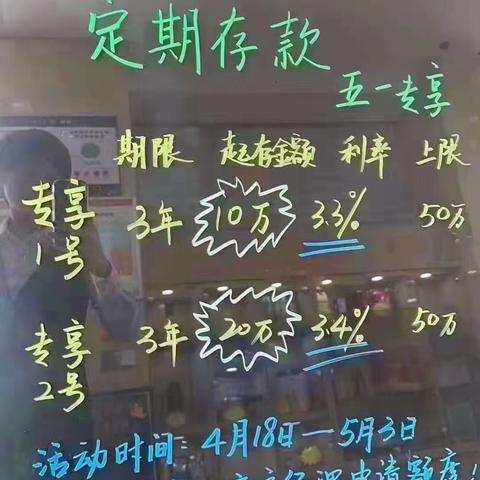 定期存款
五一专享
期限 起存金额 利率 上限
专享1号 3年 10万 3.3% 50万
专享2号 3年 20万 3.4% 50万
活动时间：4月18日—5月3日
申请额度！